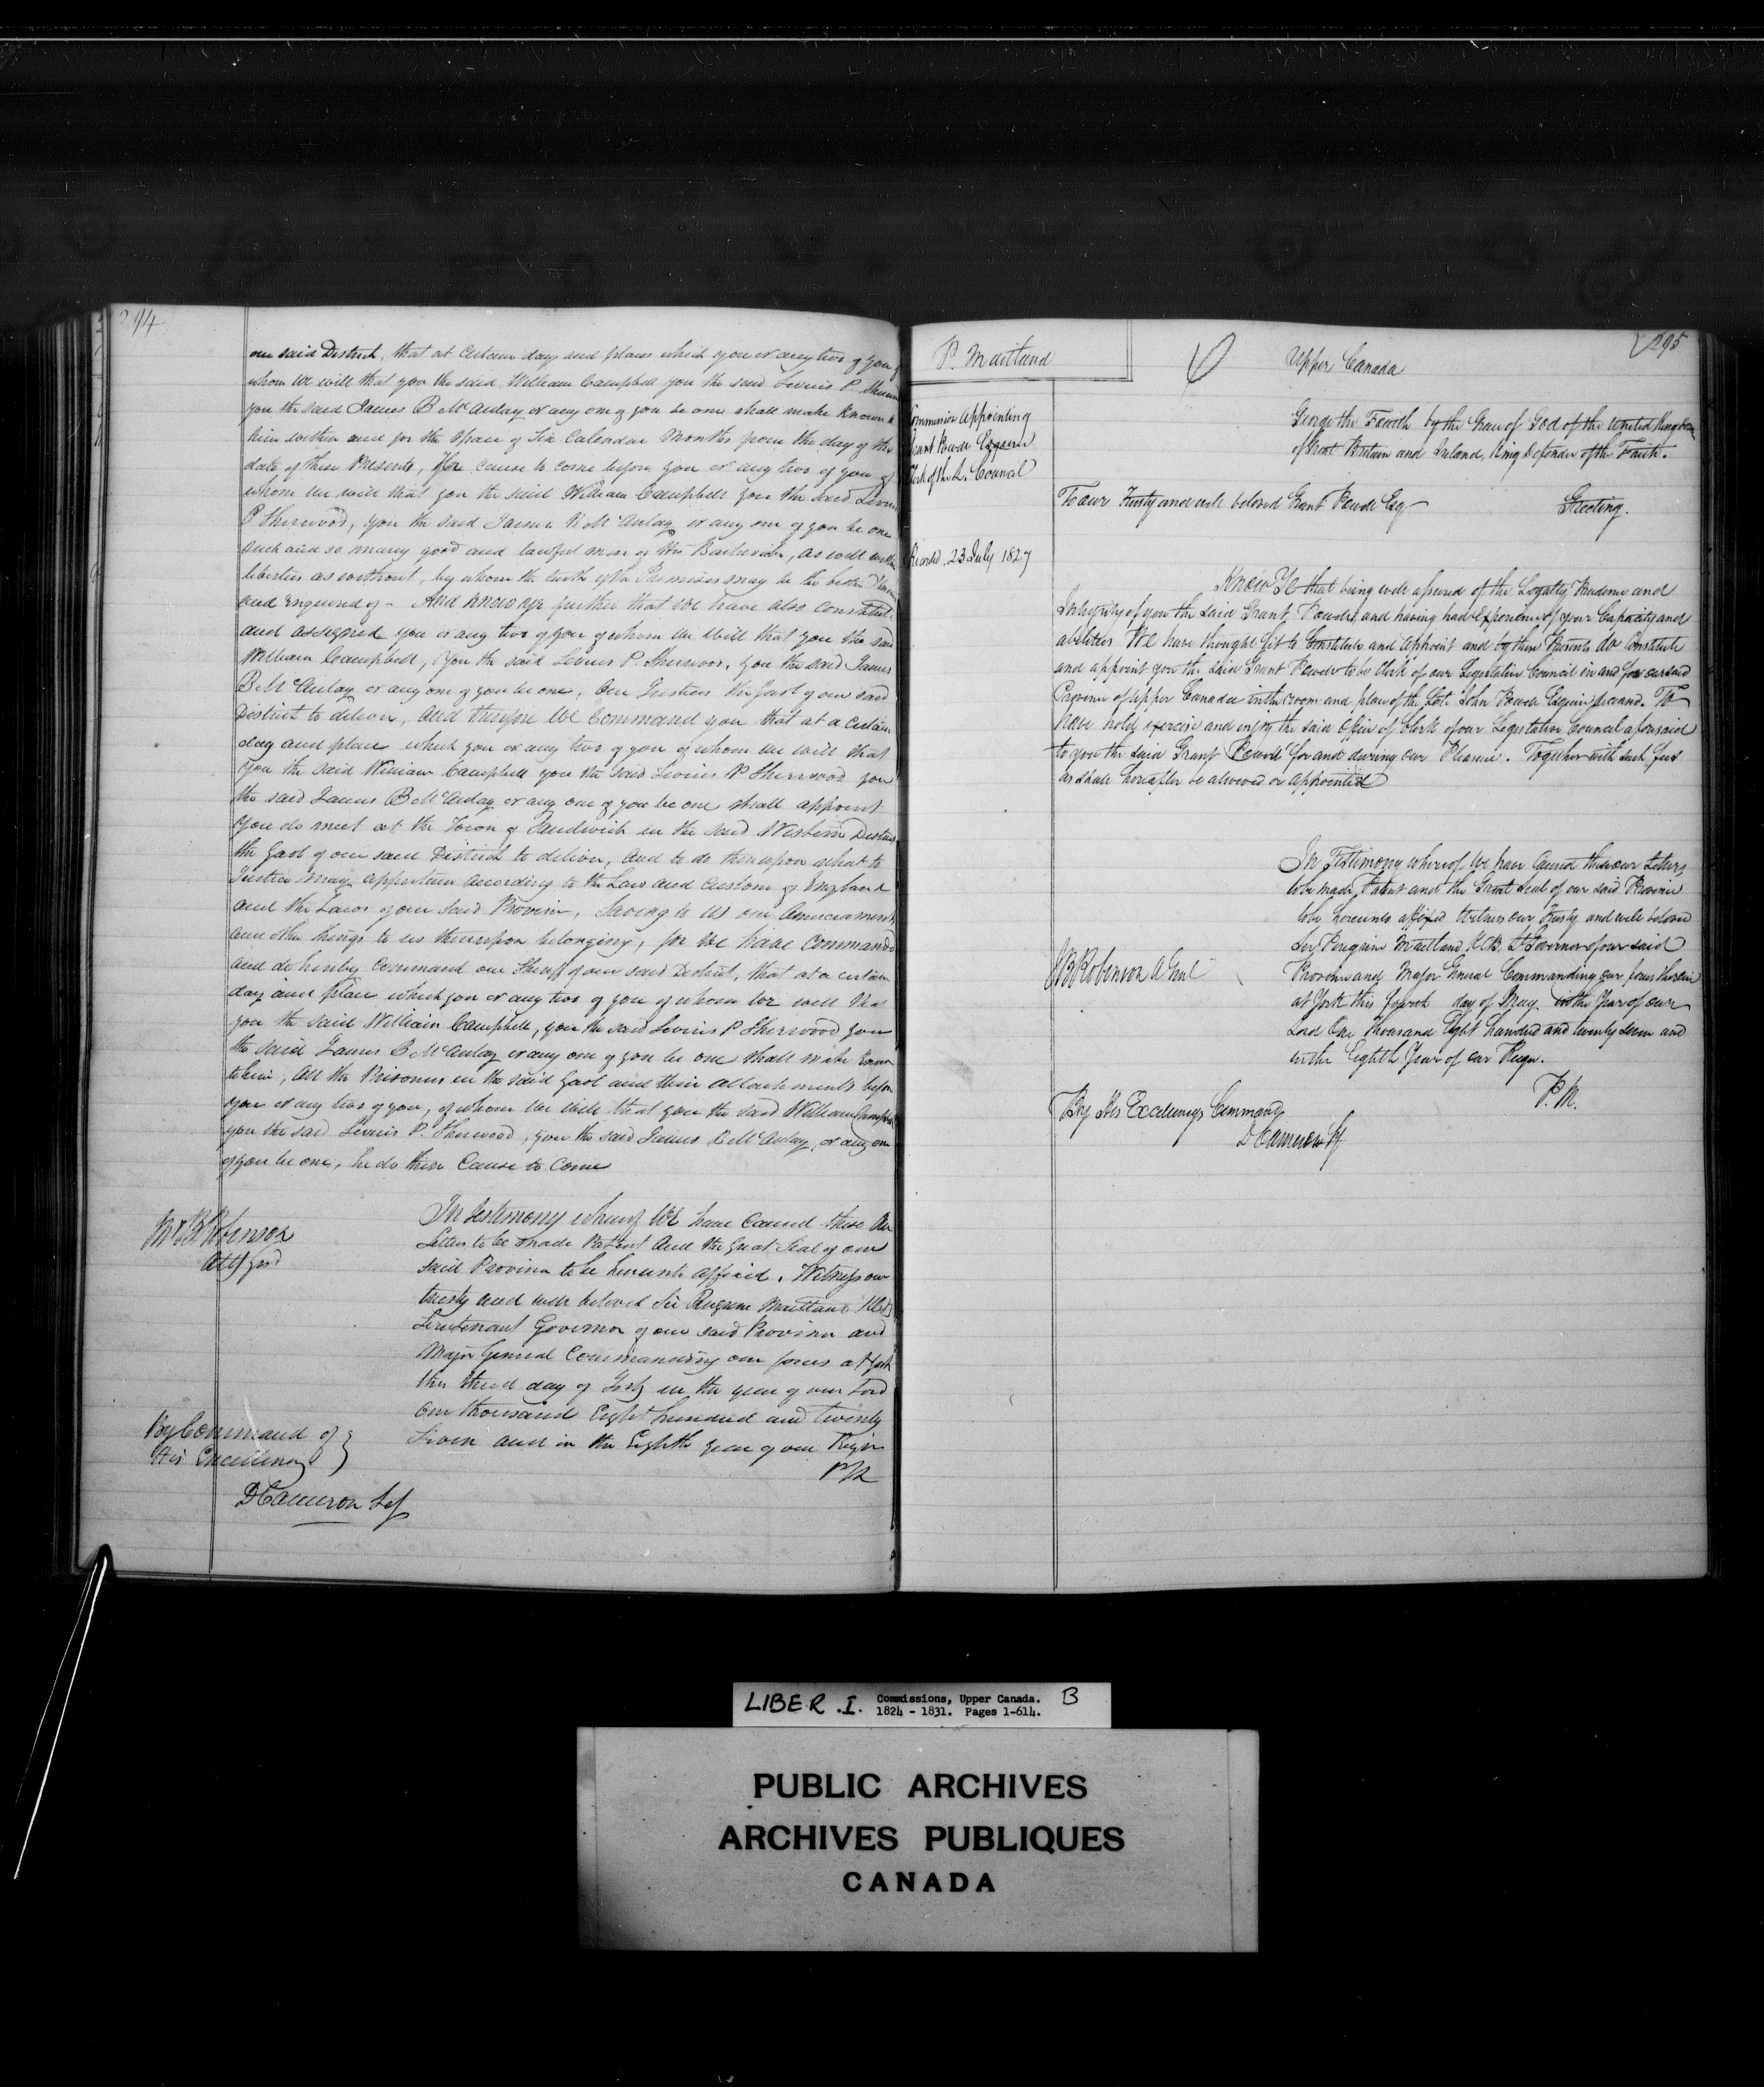 294
our said District, that at certain days and places which you or any two of you of
whom We will that you the said William Campbell you the said Levius P Sherwood
you the said James B McAulay or any one of you be one shall make known to
him within and for the space of Six Calendar Months from the day of the
date of these Presents, He cause to come before you or any two of you of
whom we will that you the said William Campbell you the said Levius
P Sherwood, you the said James B McAulay or any one of you be one
such and so many good and lawful men of His Bailiwick, as well within
liberties as without, by whom the truth of the Premises may be the better known
and enquired of - And know ye further that We have also Constituted
and assigned you or any two of you of whom we will that you the said
William Campbell, you the said Levius P. Sherwood, you the said James
B McAulay or any one of you be one, Our Justices the Gaol of our said
District to deliver, and therefore We Command you that at a certain
day and place which you or any two of you of whom we will that
you the said William Campbell you the said Levius P Sherwood you
the said James B McAulay or any one of you be one shall appoint
you do meet at the Town of Sandwich in the said Western District
the Gaol of our said District to deliver, and to do thereupon what to
Justice may appertain according to the Law and Custom of England
and the Laws of our said Province, Saving to us our Amerciaments
and other things to us thereupon belonging, for We have Commanded
and do hereby Command our Sheriff of our said District, that at a certain
day and place which you or any two of you of whom We will that
you the said William Campbell, you the said Levius P Sherwood you
the said James B McAulay or any one of you be one shall make known
to him, All the Prisoners in the said Gaol and their attachments before
you or any two of you, of whom We will that you the said William Campbell
you the said Levius P. Sherwood, you the said James B McAulay, or any one
of you be one, he do then Cause to Come
In Testimony whereof We have Caused these Our
Letters to be made Patent and the Great Seal of our
said Province to be hereunto affixed. Witness our
trusty and well beloved Sir Peregrine Maitland KCB
Lieutenant Governor of our said Province and
Major General Commanding our forces at York
this third day of July in the year of our Lord
One thousand Eight hundred and twenty
Seven and in the Eighth year of our Reign
PM
Robinson
Atty Genl
By Command of
His Excellency
D Cameron Secy
295
P. Maitland
Upper Canada
Commission appointing
Grant Powell Esquire
Clerk of the L. Council
Recorded 23 July 1827
George the Fourth by the Grace of God of the United Kingdom
of Great Britain and Ireland, King Defender of the Faith.
To our Trusty and well beloved Grant Powell Esq
Greeting.
Know Ye that being well assured of the Loyalty Prudence and
Integrity of you the said Grant Powell, and having had Experience of your Capacity and
abilities We have thought fit to Constitute and Appoint and by these Presents do Constitute
and appoint you the said Grant Powell to be Clerk of our Legislative Council in and for our said
Province of Upper Canada in the room and place of the late John Powell Esquire deceased. To
have hold, exercise and enjoy the said Office of Clerk of our Legislative Council aforesaid
to you the said Grant Powell for and during our Pleasure. Together with such fees
as shall hereafter be allowed or appointed
In Testimony whereof We have Caused these our Letters
to be made Patent and the Great Seal of our said Province
to be hereunto affixed Witness our Trusty and well beloved
Sir Peregrine Maitland K.C.B. Lt Governor of our said
Province and Major General Commanding our forces therein
at York this fourth day of May in the Year of our
Lord One thousand Eight hundred and twenty seven and
in the Eighth Year of our Reign.
P. M.
J B Robinson A Genl
By His Excellencys Command
D Cameron Sy
LIBER .I. Commissions, Upper Canada. B
1824 - 1831. Pages 1-614.
PUBLIC ARCHIVES
ARCHIVES PUBLIQUES
CANADA